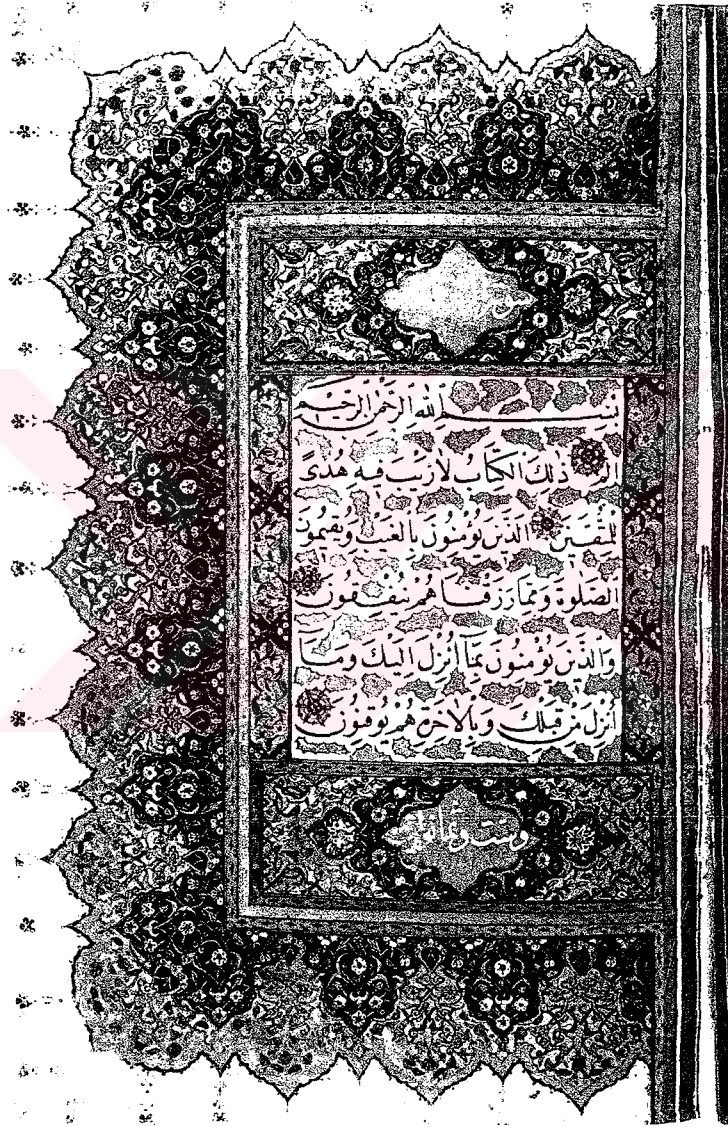 بِسْمِ اللهِ الرَّحْمٰنِ الرَّحِيْمِ
الٓمٓ ذٰلِكَ الْكِتَابُ لَا رَيْبَ فِيهِ هُدًى
لِلْمُتَّقِينَ الَّذِينَ يُؤْمِنُونَ بِالْغَيْبِ وَيُقِيمُونَ
الصَّلٰوةَ وَمِمَّا رَزَقْنَاهُمْ يُنْفِقُونَ
وَالَّذِينَ يُؤْمِنُونَ بِمَآ اُنْزِلَ اِلَيْكَ وَمَآ
اُنْزِلَ مِنْ قَبْلِكَ وَبِالْاٰخِرَةِ هُمْ يُوقِنُونَ
وست وثمانون